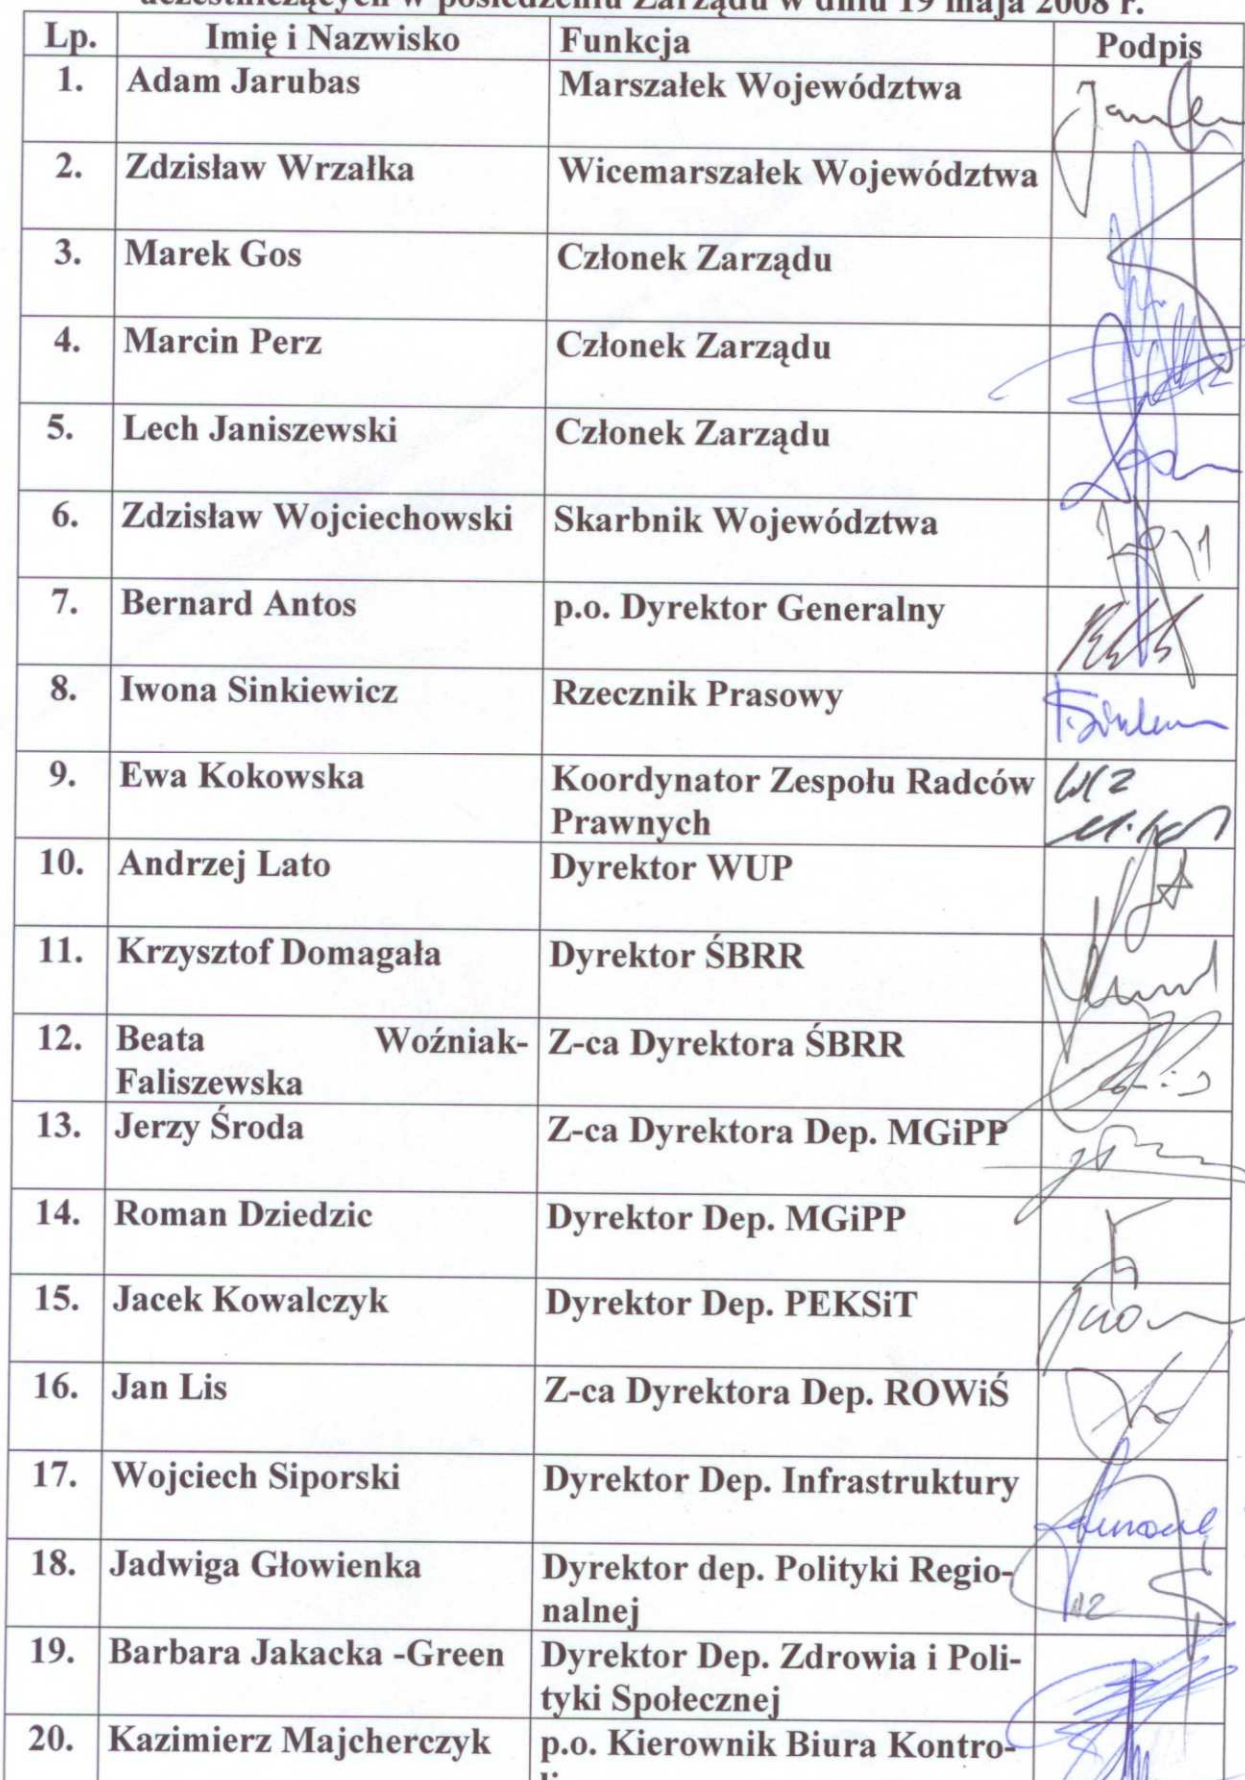 uczestniczących w posiedzeniu Zarządu w dniu 19 maja 2008 r.
Lp. Imię i Nazwisko Funkcja Podpis
1. Adam Jarubas Marszałek Województwa
2. Zdzisław Wrzałka Wicemarszałek Województwa
3. Marek Gos Członek Zarządu
4. Marcin Perz Członek Zarządu
5. Lech Janiszewski Członek Zarządu
6. Zdzisław Wojciechowski Skarbnik Województwa
7. Bernard Antos p.o. Dyrektor Generalny
8. Iwona Sinkiewicz Rzecznik Prasowy
9. Ewa Kokowska Koordynator Zespołu Radców
Prawnych
10. Andrzej Lato Dyrektor WUP
11. Krzysztof Domagała Dyrektor ŚBRR
12. Beata Woźniak- Z-ca Dyrektora ŚBRR
Faliszewska
13. Jerzy Środa Z-ca Dyrektora Dep. MGiPP
14. Roman Dziedzic Dyrektor Dep. MGiPP
15. Jacek Kowalczyk Dyrektor Dep. PEKSiT
16. Jan Lis Z-ca Dyrektora Dep. ROWiŚ
17. Wojciech Siporski Dyrektor Dep. Infrastruktury
18. Jadwiga Głowienka Dyrektor dep. Polityki Regio-
nalnej
19. Barbara Jakacka -Green Dyrektor Dep. Zdrowia i Poli-
tyki Społecznej
20. Kazimierz Majcherczyk p.o. Kierownik Biura Kontro-